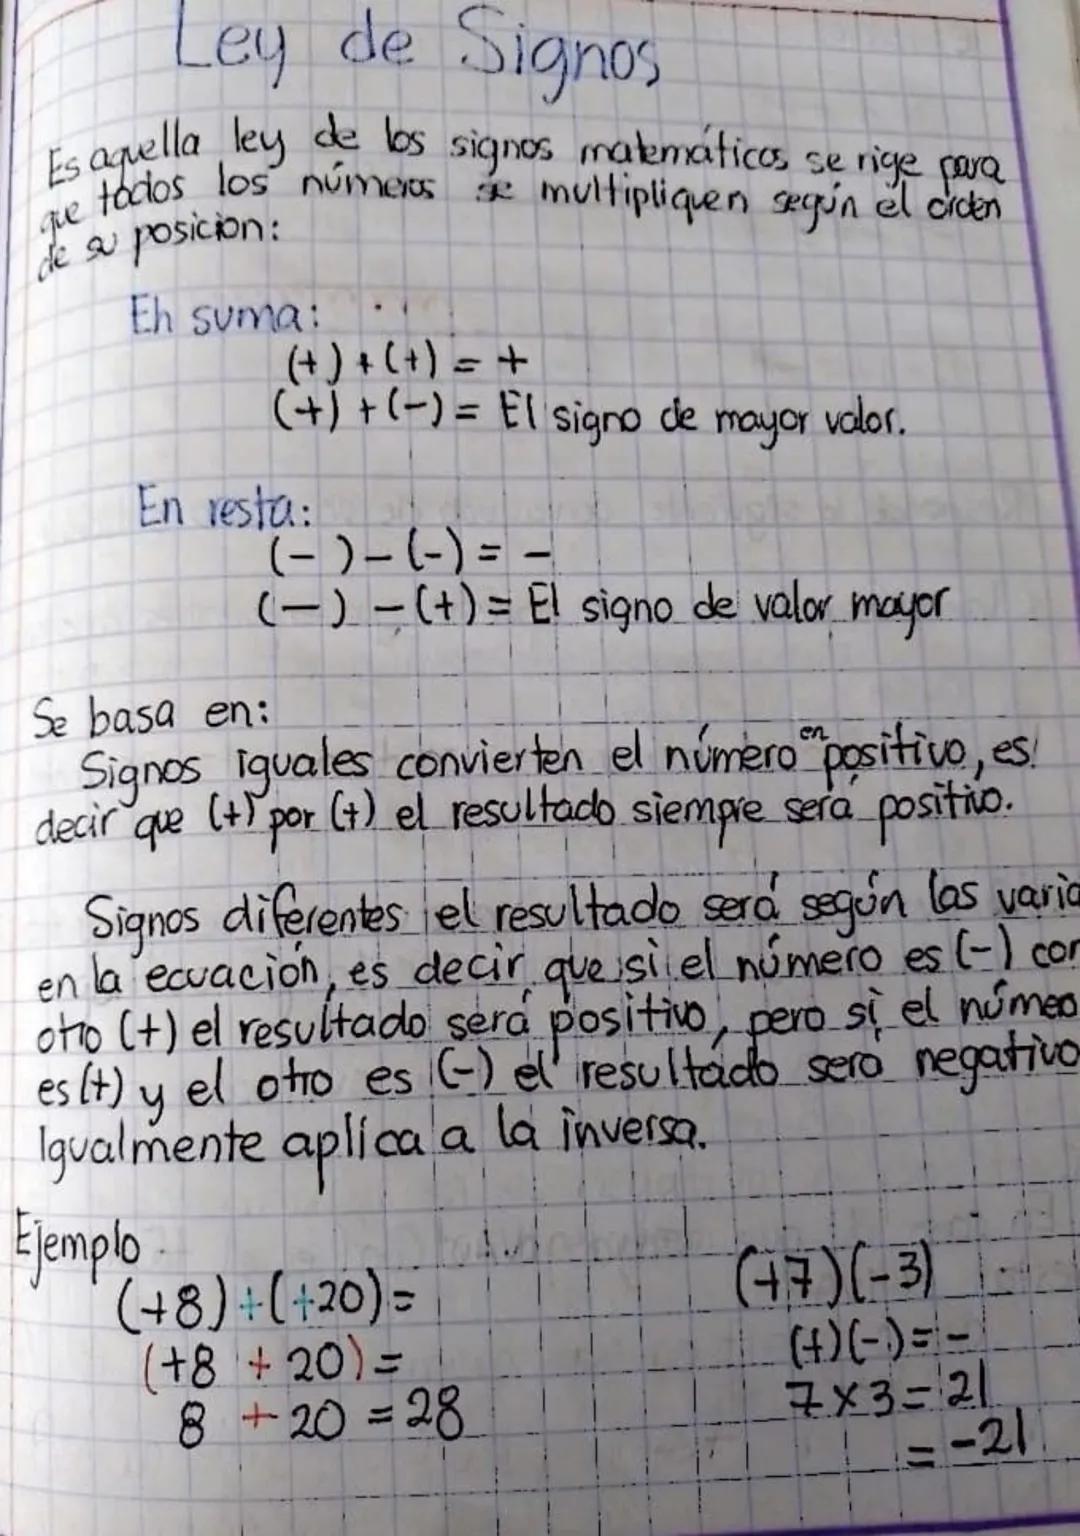 Ley de Signos
Es aquella ley de los signos matemáticos se rige para
que todos los números se multipliquen según el orden
de su posicion:
En suma:
(+) + (+) = +
(+) + (-) = El signo de mayor valor.
En resta:
(-) - (-) = -
(-) - (+) = El signo de valor mayor
Se basa en:
Signos iguales convierten el número en positivo, es
decir que (+) por (+) el resultado siempre será positivo.
Signos diferentes el resultado será según las varia
en la ecuación, es decir que si el número es (-) con
otro (+) el resultado será positivo, pero si el númeo
es (+) y el otro es (-) el resultado sera negativo
Igualmente aplica a la inversa.
Ejemplo
(+8) + (+20) =
(+7)(-3)
(+8 + 20) =
(+)(-) = -
8 + 20 = 28
7 x 3 = 21
= -21